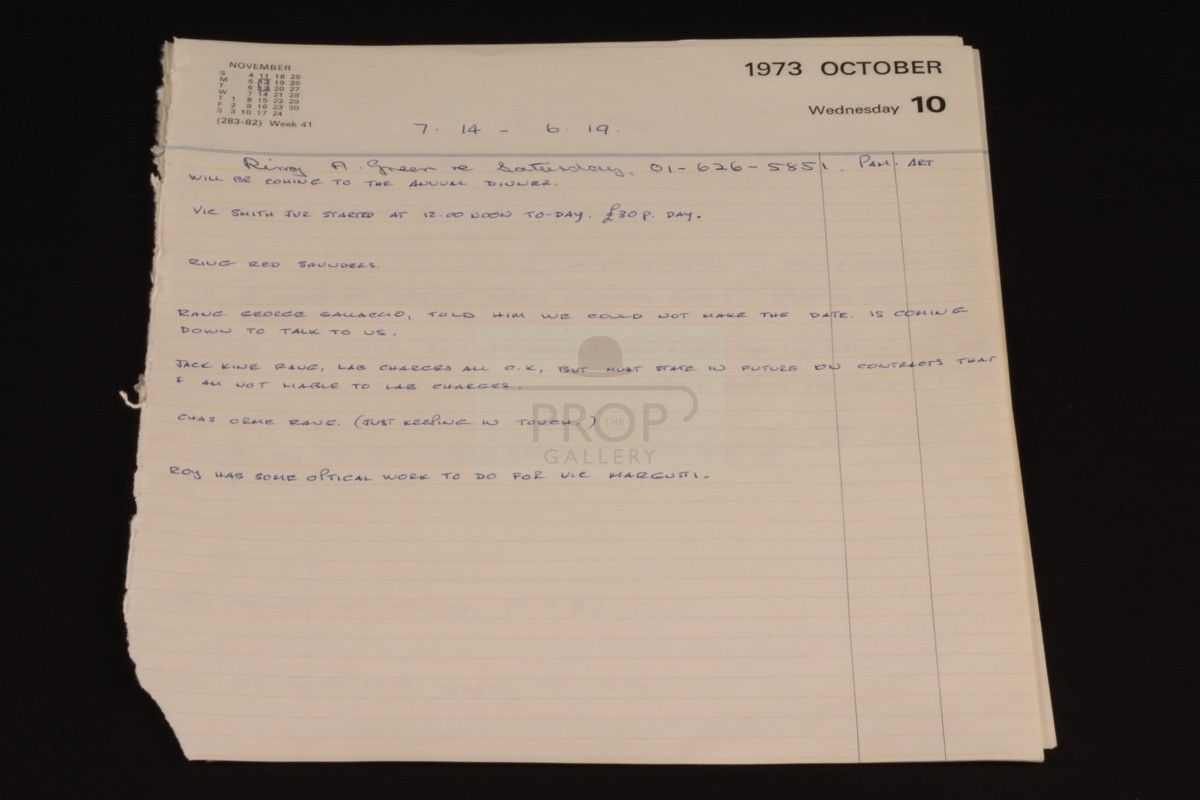 NOVEMBER
S 4 11 18 25
M 5 12 19 26
T 6 13 20 27
W 7 14 21 28
T 1 8 15 22 29
F 2 9 16 23 30
S 3 10 17 24
(283-82) Week 41
1973 OCTOBER
Wednesday 10
7. 14 - 6. 19.
Ring A. Green re Saturday. 01-626-5851. PAM. ART
WILL BE COMING TO THE ANNUAL DINNER.
VIC SMITH JUR STARTED AT 12.00 NOON TO-DAY. £30 P. DAY.
RING RED SAUNDERS.
RANG GEORGE GALLACCIO, TOLD HIM WE COULD NOT MAKE THE DATE. IS COMING
DOWN TO TALK TO US.
JACK KINE RANG, LAB CHARGES ALL O.K, BUT MUST STATE IN FUTURE ON CONTRACTS THAT
I AM NOT LIABLE TO LAB CHARGES.
CHAS ORME RANG. (JUST KEEPING IN TOUCH.)
ROY HAS SOME OPTICAL WORK TO DO FOR VIC MARGUTTI.
THE PROP
GALLERY